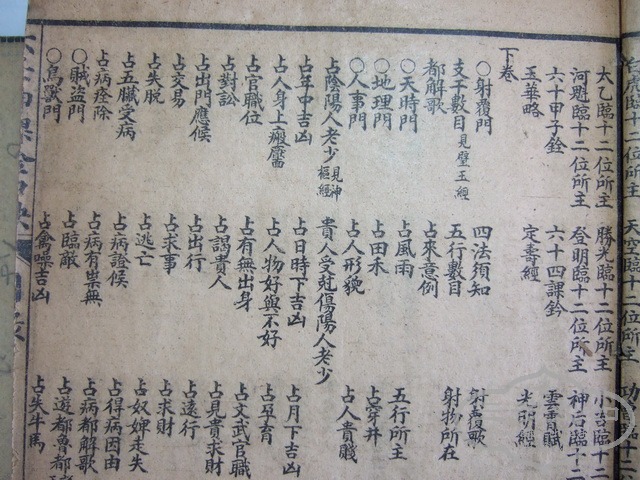 白虎臨十二位所主 天空臨十二位所主 功
太乙臨十二位所主 勝光臨十二位所主 小吉臨十二
河魁臨十二位所主 登明臨十二位所主 神后臨十二
六十甲子鈐 六十四課鈐 雲霄賦
玉華略 定壽經 光明經
下卷
〇射覆門 四法須知 射覆歌
支干數目見璧玉經 五行數目 射物所在
都解歌 占來意例
〇天時門 占風雨 五行所主
〇地理門 占田禾 占穿井
〇人事門 占人形貌 占人貴賤
占陰陽人老少見神樞經 貴人受尅傷陽人老少
占年中吉凶 占日時下吉凶 占月下吉凶
占人身上瘢靨 占人物好與不好 占孕育
占官職位 占有無出身 占文武官職
占對訟 占謁貴人 占見貴求財
占出門應候 占出行 占遠行
占交易 占求事 占求財
占失脫 占逃亡 占奴婢走失
占五臟受病 占病證候 占得病因由
占病痊除 占病有祟無 占病都解歌
〇賊盜門 占臨敵 占遊都魯都
〇鳥獸門 占禽噪吉凶 占失牛馬